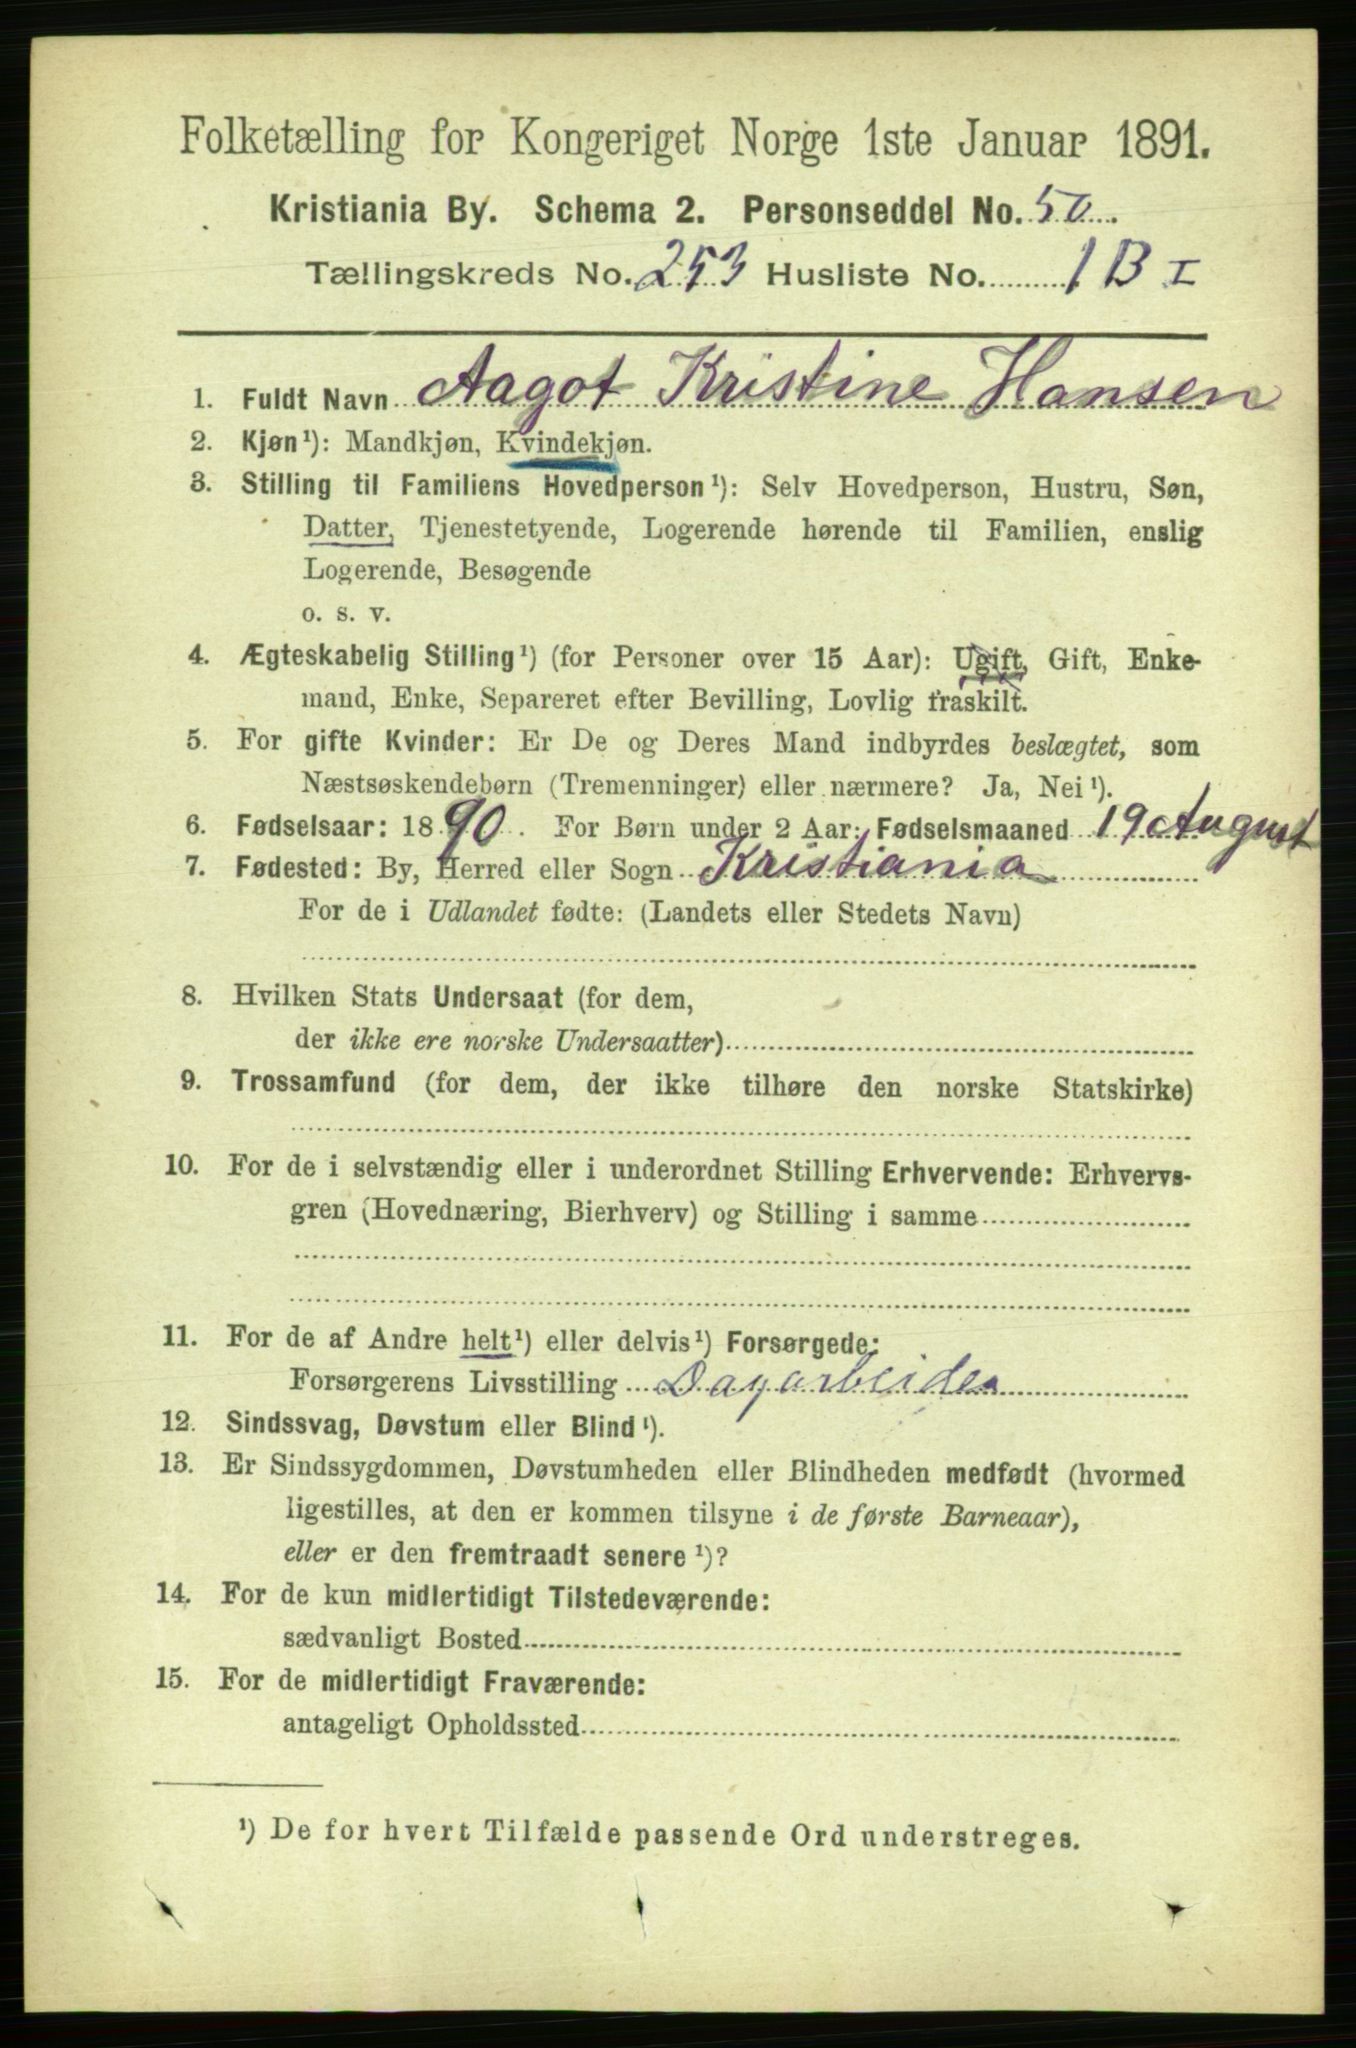 Folketælling for Kongeriget Norge 1ste Januar 1891.
Kristiania By. Schema 2. Personseddel No. 50.
Tællingskreds No. 253 Husliste No. 1 B I
1. Fuldt Navn Aagot Kristine Hansen
2. Kjøn¹): Mandkjøn, Kvindekjøn.
3. Stilling til Familiens Hovedperson¹): Selv Hovedperson, Hustru, Søn,
Datter, Tjenestetyende, Logerende hørende til Familien, enslig
Logerende, Besøgende
o. s. v.
4. Ægteskabelig Stilling¹) (for Personer over 15 Aar): Ugift, Gift, Enke-
mand, Enke, Separeret efter Bevilling, Lovlig fraskilt.
5. For gifte Kvinder: Er De og Deres Mand indbyrdes beslægtet, som
Næstsøskendebørn (Tremenninger) eller nærmere? Ja, Nei¹).
6. Fødselsaar: 1890. For Børn under 2 Aar: Fødselsmaaned 19 August
7. Fødested: By, Herred eller Sogn Kristiania
For de i Udlandet fødte: (Landets eller Stedets Navn)
8. Hvilken Stats Undersaat (for dem,
der ikke ere norske Undersaatter)
9. Trossamfund (for dem, der ikke tilhøre den norske Statskirke)
10. For de i selvstændig eller i underordnet Stilling Erhvervende: Erhvervs-
gren (Hovednæring, Bierhverv) og Stilling i samme
11. For de af Andre helt¹) eller delvis¹) Forsørgede:
Forsørgerens Livsstilling Dagarbeider
12. Sindssvag, Døvstum eller Blind¹).
13. Er Sindssygdommen, Døvstumheden eller Blindheden medfødt (hvormed
ligestilles, at den er kommen tilsyne i de første Barneaar),
eller er den fremtraadt senere¹)?
14. For de kun midlertidigt Tilstedeværende:
sædvanligt Bosted
15. For de midlertidigt Fraværende:
antageligt Opholdssted
¹) De for hvert Tilfælde passende Ord understreges.